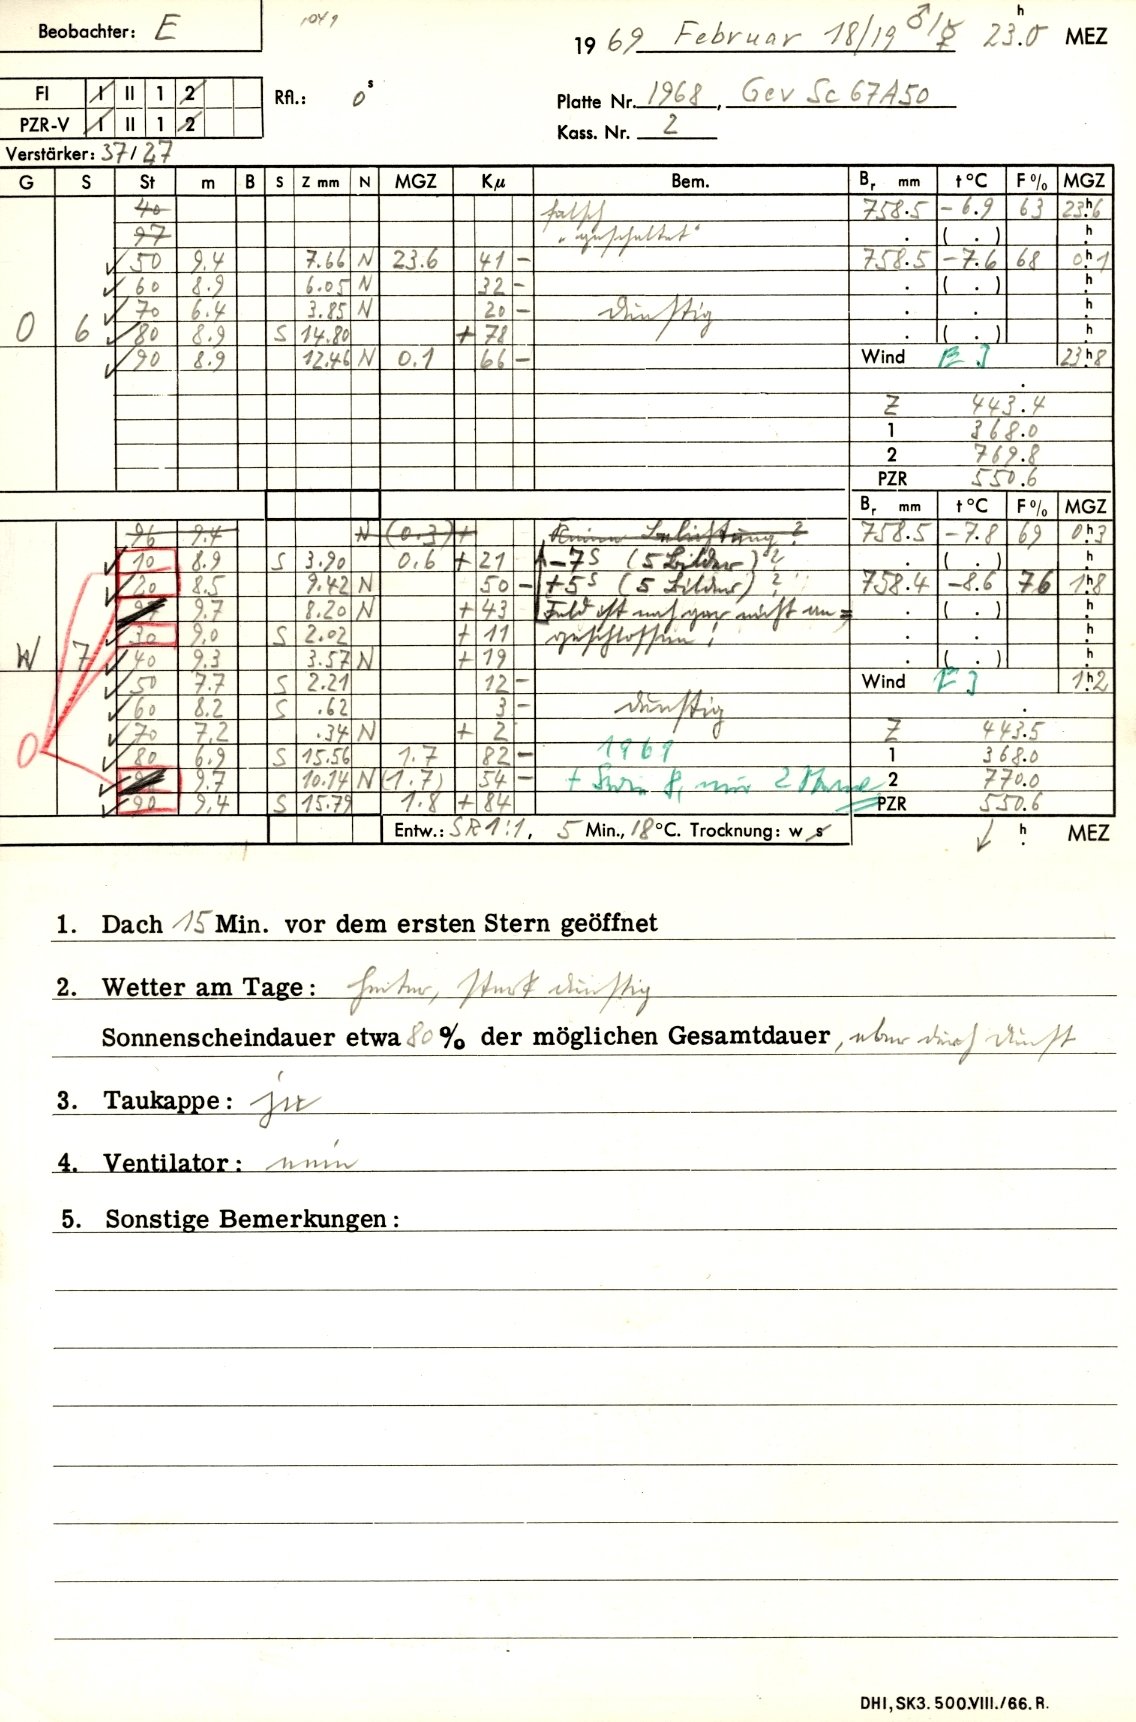 Beobachter: E
1969 Februar 18/19 ♂/☿ 23.0 h MEZ
FI I II 1 2 Rfl.: 0 s
Platte Nr. 1968, Gev Sc 67A50
PZR-V I II 1 2
Kass. Nr. 2
Verstärker: 37/27
G S St m B S Z mm N MGZ Kμ Bem. Br mm t °C F % MGZ
40 falsch 758.5 -6.9 63 23h6
97 "geschaltet" . ( . ) h
50 9.4 7.66 N 23.6 41 - 758.5 -7.6 68 0h1
60 8.9 6.05 N 32 - . ( . ) h
O 6 70 6.4 3.85 N 20 - dunstig . . h
80 8.9 S 14.80 + 78 . ( . ) h
90 8.9 12.46 N 0.1 66 - Wind E 23h8
Z 443.4
1 368.0
2 769.8
PZR 550.6
Br mm t °C F % MGZ
96 9.4 N (0.3) + Keine Belichtung? 758.5 -7.8 69 0h3
10 8.9 S 3.90 0.6 + 21 -7s (5 Bilder)? . ( . ) h
20 8.5 9.42 N 50 - +5s (5 Bilder)? 758.4 -8.6 76 1h8
9.7 8.20 N + 43 Feld ist noch gar nicht an= . ( . ) h
30 9.0 S 2.02 + 11 geschlossen! . . h
W 7 40 9.3 3.57 N + 19 . ( . ) h
50 7.7 S 2.21 12 - Wind E 1h2
60 8.2 S .62 3 - dunstig
O 70 7.2 .34 N + 2 Z 443.5
80 6.9 S 15.56 1.7 82 - 1969 1 368.0
9.7 10.14 N (1.7) 54 - nur 2 2 770.0
90 9.4 S 15.79 1.8 + 84 PZR 550.6
Entw.: SR 1:1, 5 Min., 18 °C. Trocknung: w s h MEZ
1. Dach 15 Min. vor dem ersten Stern geöffnet
2. Wetter am Tage: heiter, stark dunstig
Sonnenscheindauer etwa 80 % der möglichen Gesamtdauer, aber durch Dunst
3. Taukappe: ja
4. Ventilator: nein
5. Sonstige Bemerkungen:
DHI, SK3. 500.VIII./66. R.